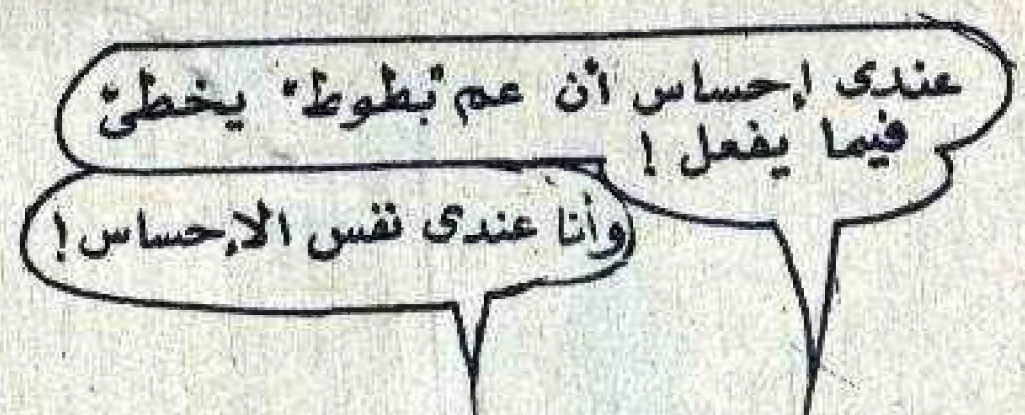 عندى إحساس أن عم "بطوط" يخطئ
فيما يفعل !
وأنا عندى نفس الإحساس !